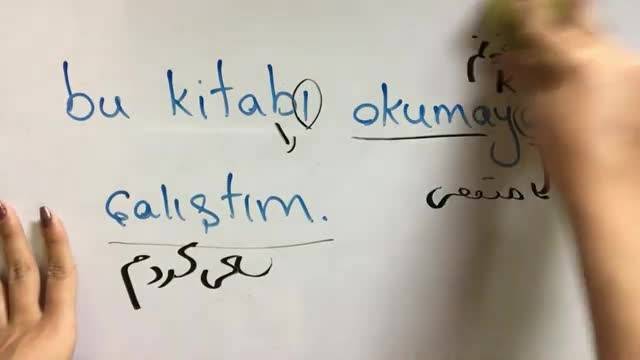 bu kitabı okumay
را
çalıştım.
سعی کردم